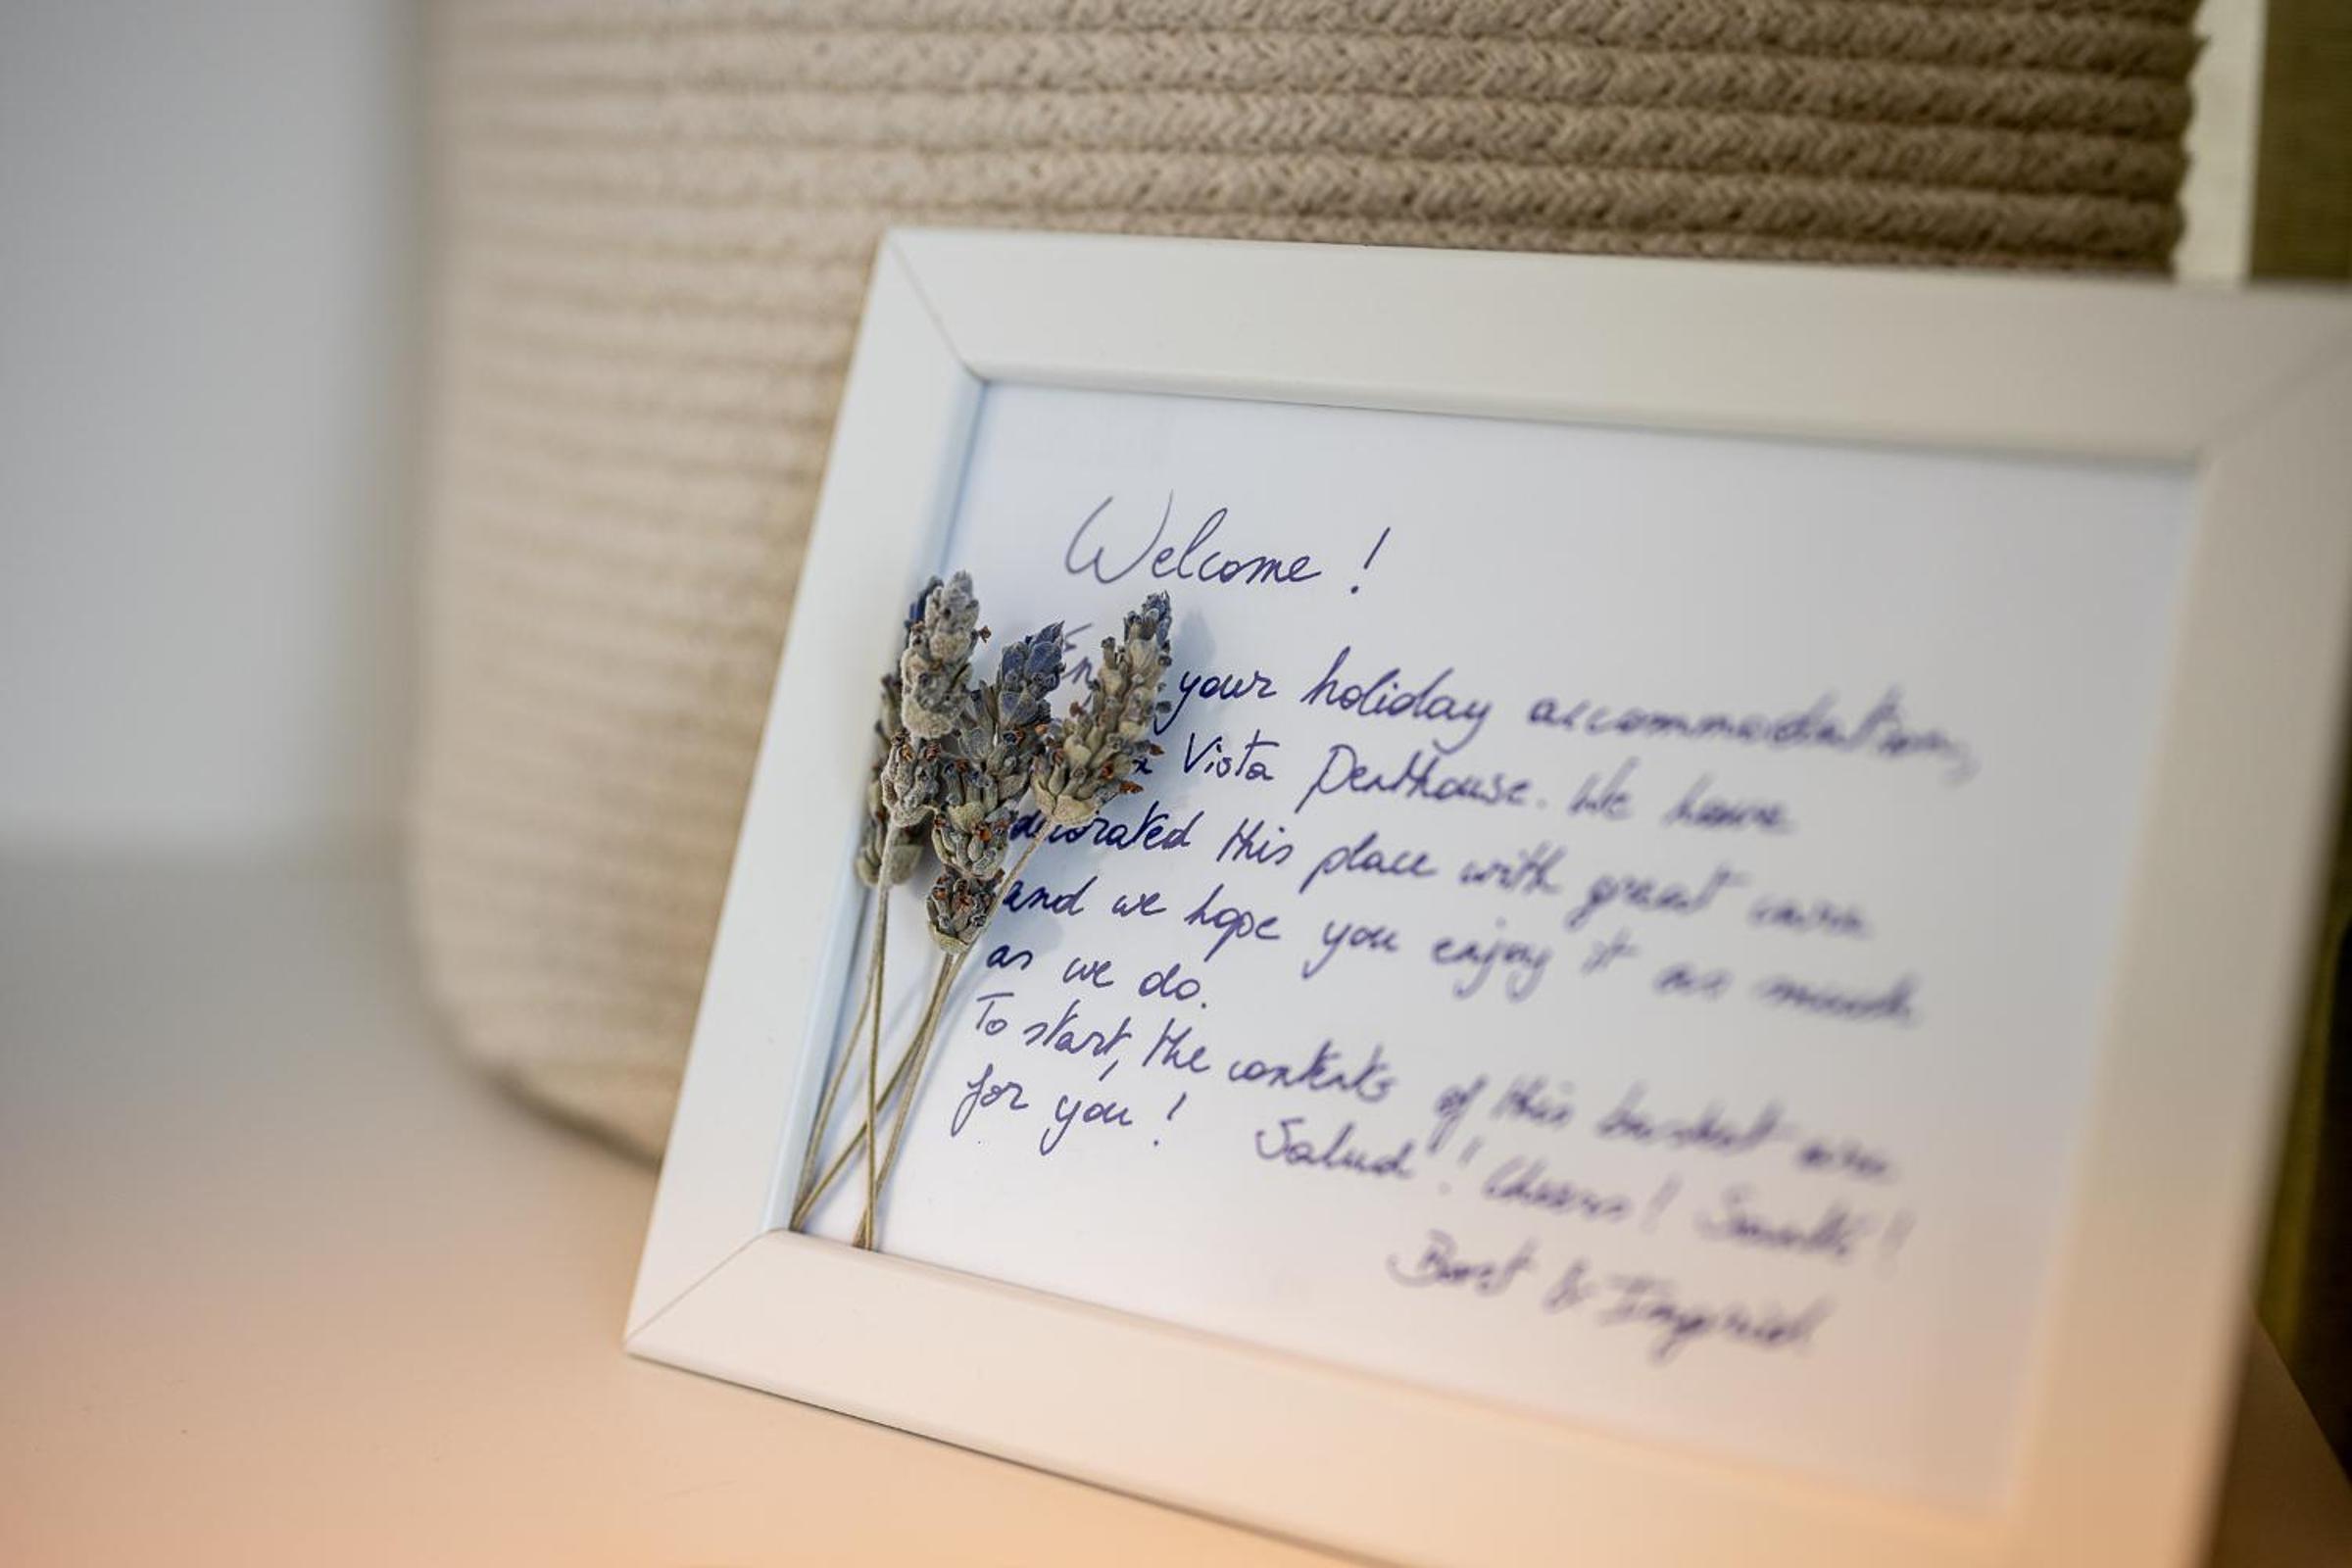 Welcome !
your holiday accommodation,
Vista Penthouse. We have
decorated this place with great care
and we hope you enjoy it as much
as we do.
To start, the contents of this basket are
for you ! Salud ! Cheers !
& Ingrid